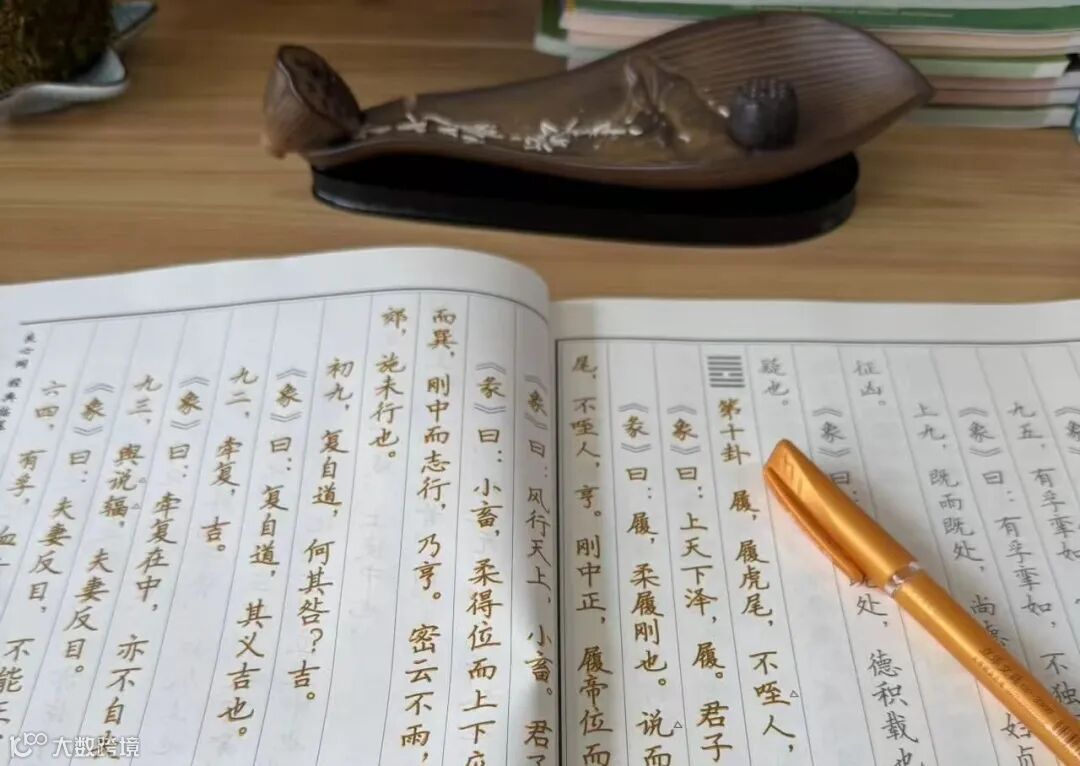 《象
九五，有孚挛如
《象》曰：有孚挛如，不独
上九，既雨既处，尚
征凶。
《象》曰：处，德积载也
疑也。
䷉ 第十卦 履，履虎尾，不咥人，
《象》曰：上天下泽，履。君子
《彖》曰：履，柔履刚也。说而
尾，不咥人，亨。刚中正，履帝位而
《象》曰：风行天上，小畜。君子
《彖》曰：小畜，柔得位而上下应
而巽，刚中而志行，乃亨。密云不雨，
郊，施未行也。
初九，复自道，何其咎？吉。
《象》曰：复自道，其义吉也。
九二，牵复，吉。
《象》曰：牵复在中，亦不自
九三，舆说辐，夫妻反目。
《象》曰：夫妻反目，不能正
六四，有孚，血
大数跨境